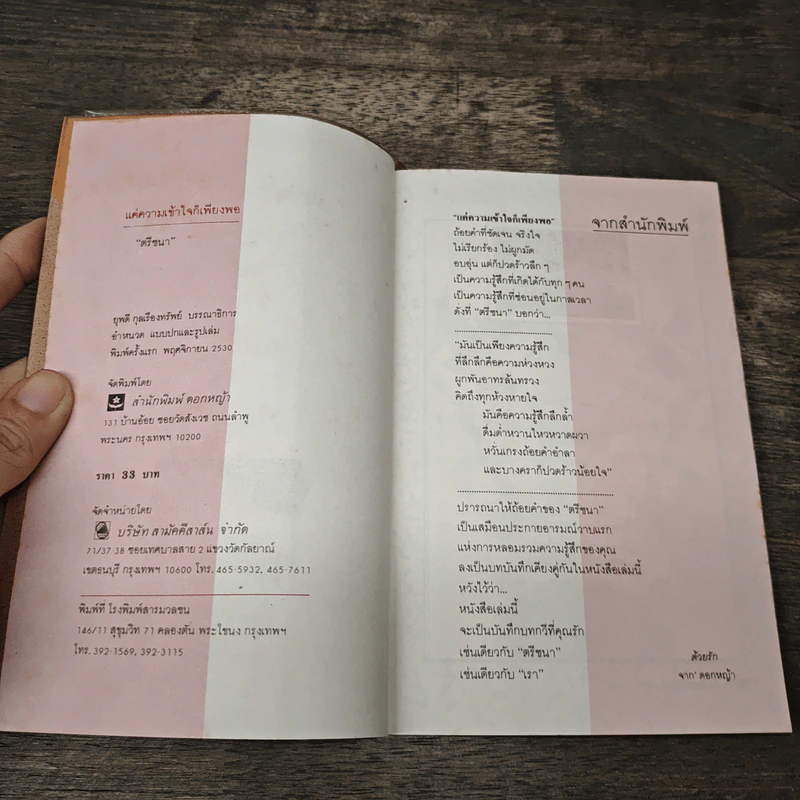 แค่ความเข้าใจก็เพียงพอ
"ตรีชนา"
ยุพดี กุลเรืองทรัพย์ บรรณาธิการ
อำหนวด แบบปกและรูปเล่ม
พิมพ์ครั้งแรก พฤศจิกายน 2530
จัดพิมพ์โดย
สำนักพิมพ์ ดอกหญ้า
131 บ้านอ้อย ซอยวัดสังเวช ถนนลำพู
พระนคร กรุงเทพฯ 10200
ราคา 33 บาท
จัดจำหน่ายโดย
บริษัท สามัคคีสาส์น จำกัด
71/37-38 ซอยเทศบาลสาย 2 แขวงวัดกัลยาณ์
เขตธนบุรี กรุงเทพฯ 10600 โทร. 465-5932, 465-7611
พิมพ์ที่ โรงพิมพ์สารมวลชน
146/11 สุขุมวิท 71 คลองตัน พระโขนง กรุงเทพฯ
โทร. 392-1569, 392-3115
จากสำนักพิมพ์
"แค่ความเข้าใจก็เพียงพอ"
ถ้อยคำที่ชัดเจน จริงใจ
ไม่เรียกร้อง ไม่ผูกมัด
อบอุ่น แต่ก็ปวดร้าวลึก ๆ
เป็นความรู้สึกที่เกิดได้กับทุก ๆ คน
เป็นความรู้สึกที่ซ่อนอยู่ในกาลเวลา
ดั่งที่ "ตรีชนา" บอกว่า...
"มันเป็นเพียงความรู้สึก
ที่ลึกลึกคือความห่วงหวง
ผูกพันอาทรล้นทรวง
คิดถึงทุกห้วงหายใจ
มันคือความรู้สึกลึกล้ำ
ดื่มด่ำหวานไหวหวาดผวา
หวั่นเกรงถ้อยคำอำลา
และบางคราก็ปวดร้าวน้อยใจ"
ปรารถนาให้ถ้อยคำของ "ตรีชนา"
เป็นเสมือนประกายอารมณ์วาบแรก
แห่งการหลอมรวมความรู้สึกของคุณ
ลงเป็นบทบันทึกเคียงคู่กันในหนังสือเล่มนี้
หวังไว้ว่า...
หนังสือเล่มนี้
จะเป็นบันทึกบทกวีที่คุณรัก
เช่นเดียวกับ "ตรีชนา"
เช่นเดียวกับ "เรา"
ด้วยรัก
จาก' ดอกหญ้า